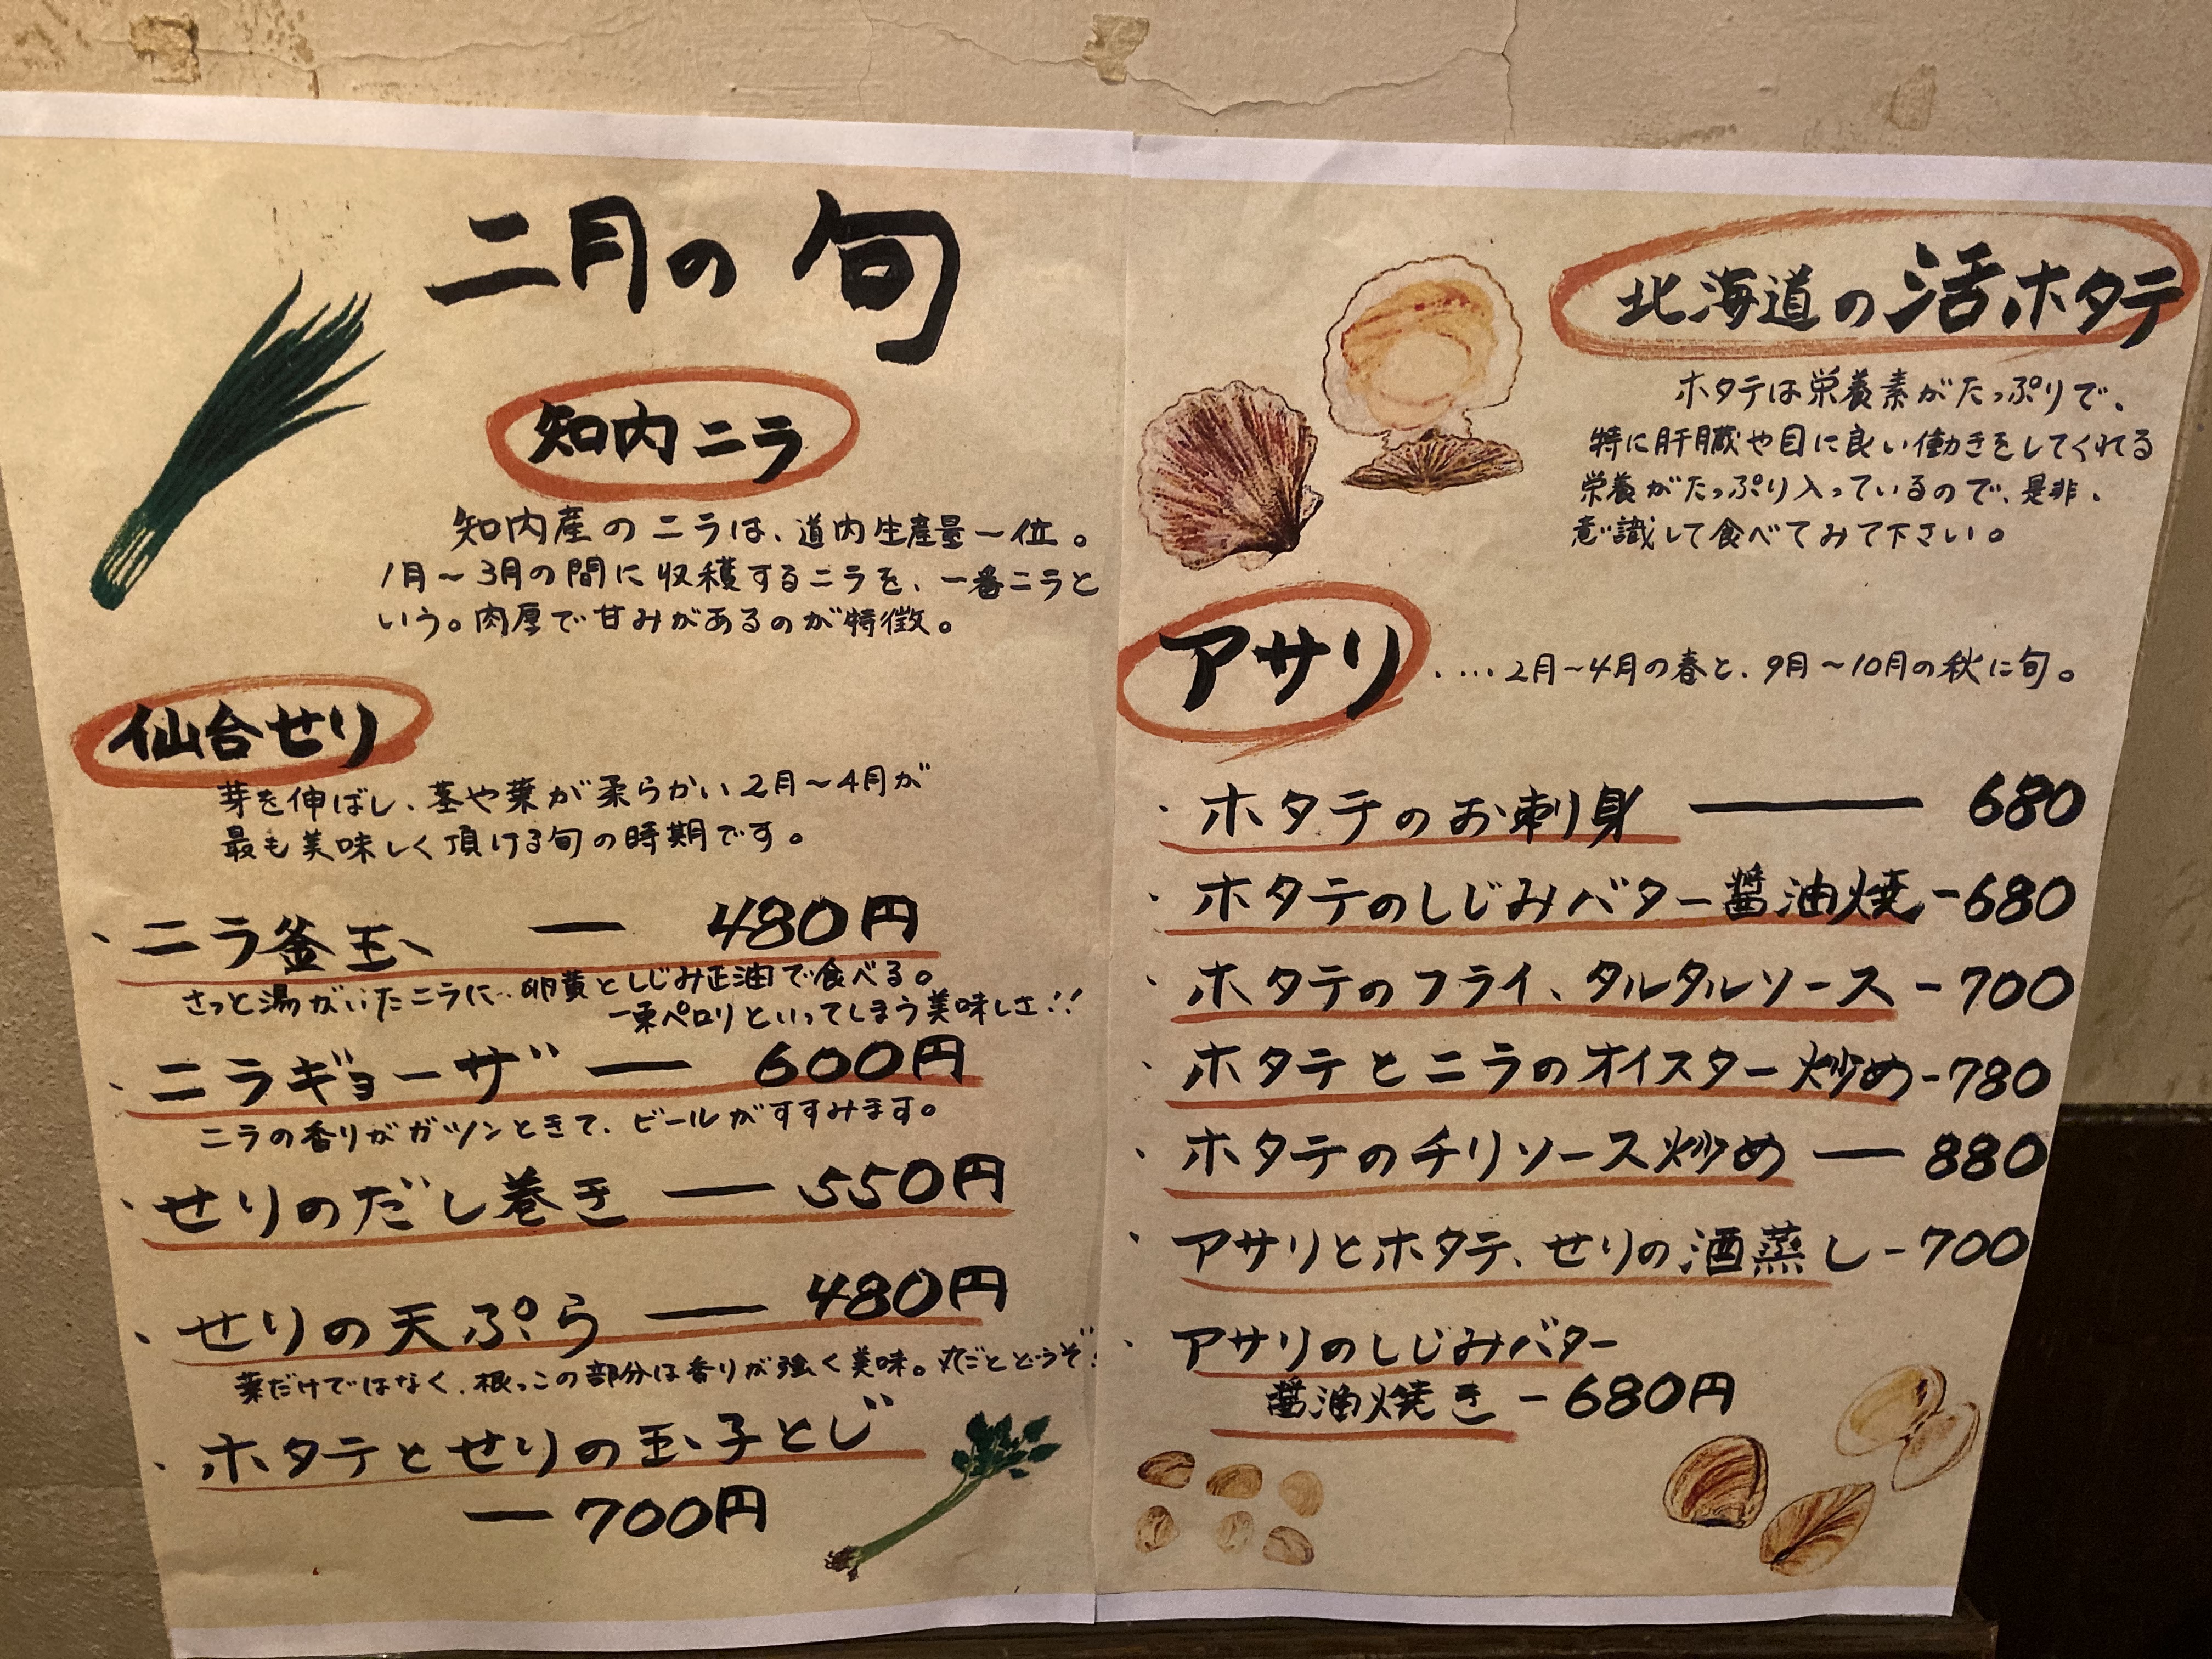 二月の旬
知内ニラ
知内産のニラは、道内生産量一位。
1月~3月の間に収穫するニラを、一番ニラと
いう。肉厚で甘みがあるのが特徴。
仙台せり
芽を伸ばし、茎や葉が柔らかい2月~4月が
最も美味しく頂ける旬の時期です。
・ニラ釜玉 — 480円
さっと湯がいたニラに、卵黄としじみ正油で食べる。
一束ペロリといってしまう美味しさ!!
・ニラギョーザ — 600円
ニラの香りがガツンときて、ビールがすすみます。
・せりのだし巻き — 550円
・せりの天ぷら — 480円
葉だけではなく、根っこの部分は香りが強く美味。丸ごとどうぞ!
・ホタテとせりの玉子とじ
— 700円
北海道の活ホタテ
ホタテは栄養素がたっぷりで、
特に肝臓や目に良い働きをしてくれる
栄養がたっぷり入っているので、是非、
意識して食べてみて下さい。
アサリ ‥‥2月~4月の春と、9月~10月の秋に旬。
・ホタテのお刺身 — 680
・ホタテのしじみバター醤油焼 - 680
・ホタテのフライ、タルタルソース - 700
・ホタテとニラのオイスター炒め - 780
・ホタテのチリソース炒め — 880
・アサリとホタテ、せりの酒蒸し - 700
・アサリのしじみバター
醤油焼き - 680円